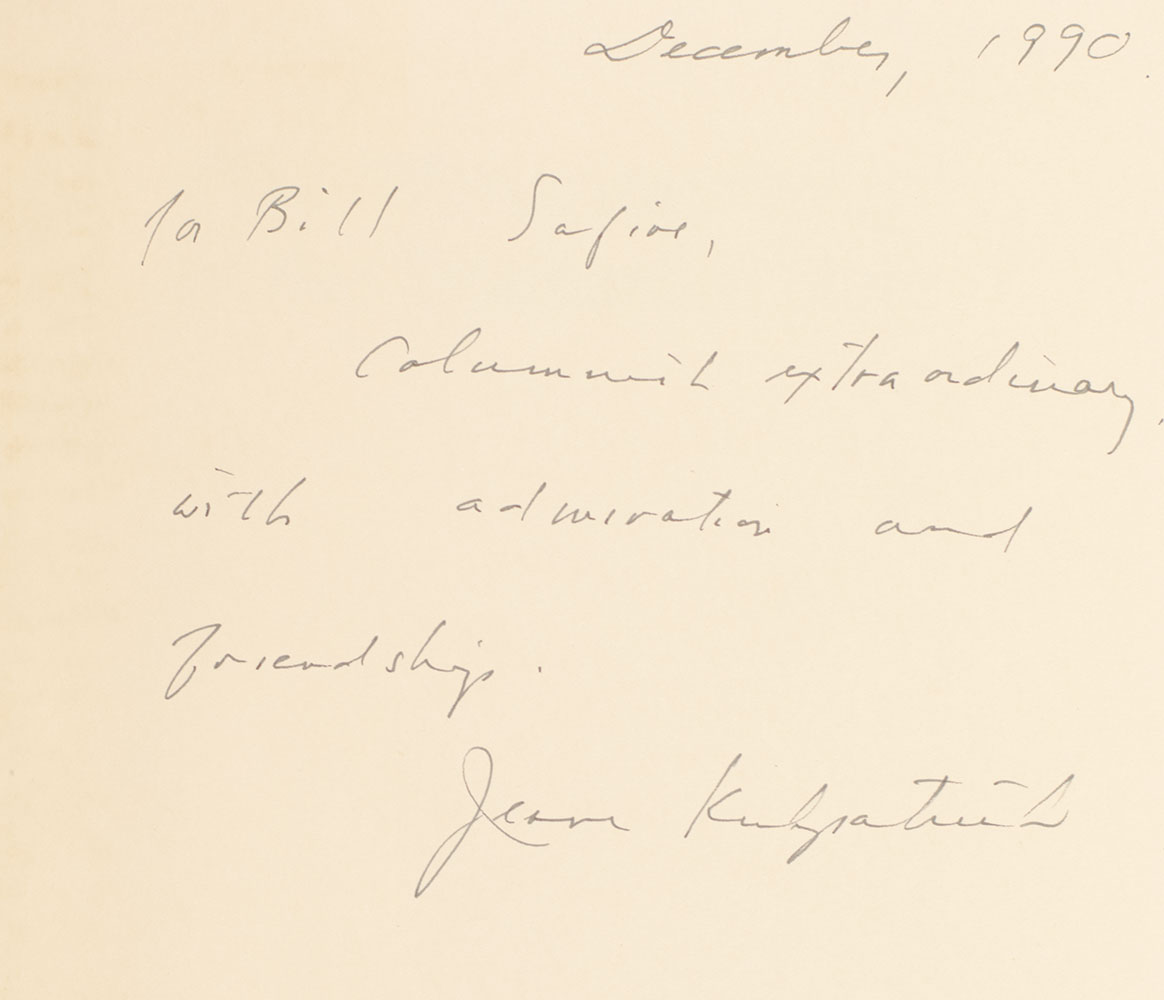 December, 1990.
for Bill Safire,
Columnist extraordinary,
with admiration and
friendship.
Jeane Kirkpatrick